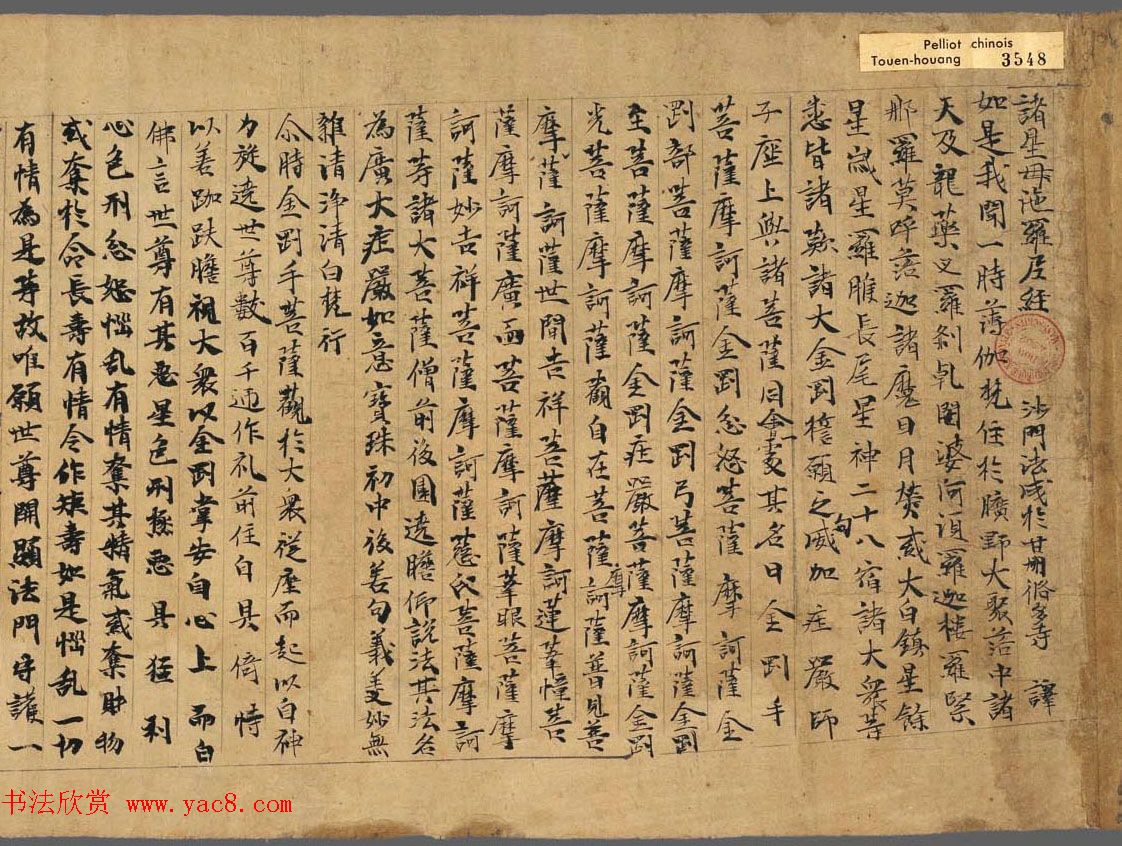 Pelliot chinois
Touen-houang 3548
諸星母陁羅尼經 沙門法成於甘州脩多寺 譯
如是我聞一時薄伽梵住於曠野大聚落中諸
天及龍藥叉羅剎乹闥婆阿須羅迦樓羅緊
那羅莫呼落迦諸魔日月熒惑大白鎮星餘
星歲星羅睺長尾星神二十八宿諸大衆等
悉皆諸諸大金剛誓願之句威加庄嚴師
子座上與諸菩薩俱其名曰金剛手
菩薩摩訶薩金剛忿怒菩薩摩訶薩金
剛部菩薩摩訶薩金剛弓菩薩摩訶薩金剛
主菩薩摩訶薩金剛庄嚴菩薩摩訶薩金剛
光菩薩摩訶薩觀自在菩薩摩訶薩普見菩
薩摩訶薩世間吉祥菩薩摩訶薩蓮華幢菩
薩摩訶薩廣面菩薩摩訶薩華眼菩薩摩
訶薩妙吉祥菩薩摩訶薩慈氏菩薩摩訶
薩等諸大菩薩僧前後圍遶瞻仰說法其法名
為廣大庄嚴如意寶珠初中後善句義美妙無
雜清淨清白梵行
尒時金剛手菩薩觀於大衆從座而起以自神
力旋遶世尊數百千迊作礼前住自具倚恃
以善跏趺瞻視大衆以金剛掌安自心上而白
佛言世尊有其惡星色刑極惡具猛利
心色刑忿怒惱乱有情奪其精氣或奪財物
或奪於命長壽有情令作短壽如是惱乱一切
有情為是等故唯願世尊開顯法門守護一
书法欣赏 www.yac8.com